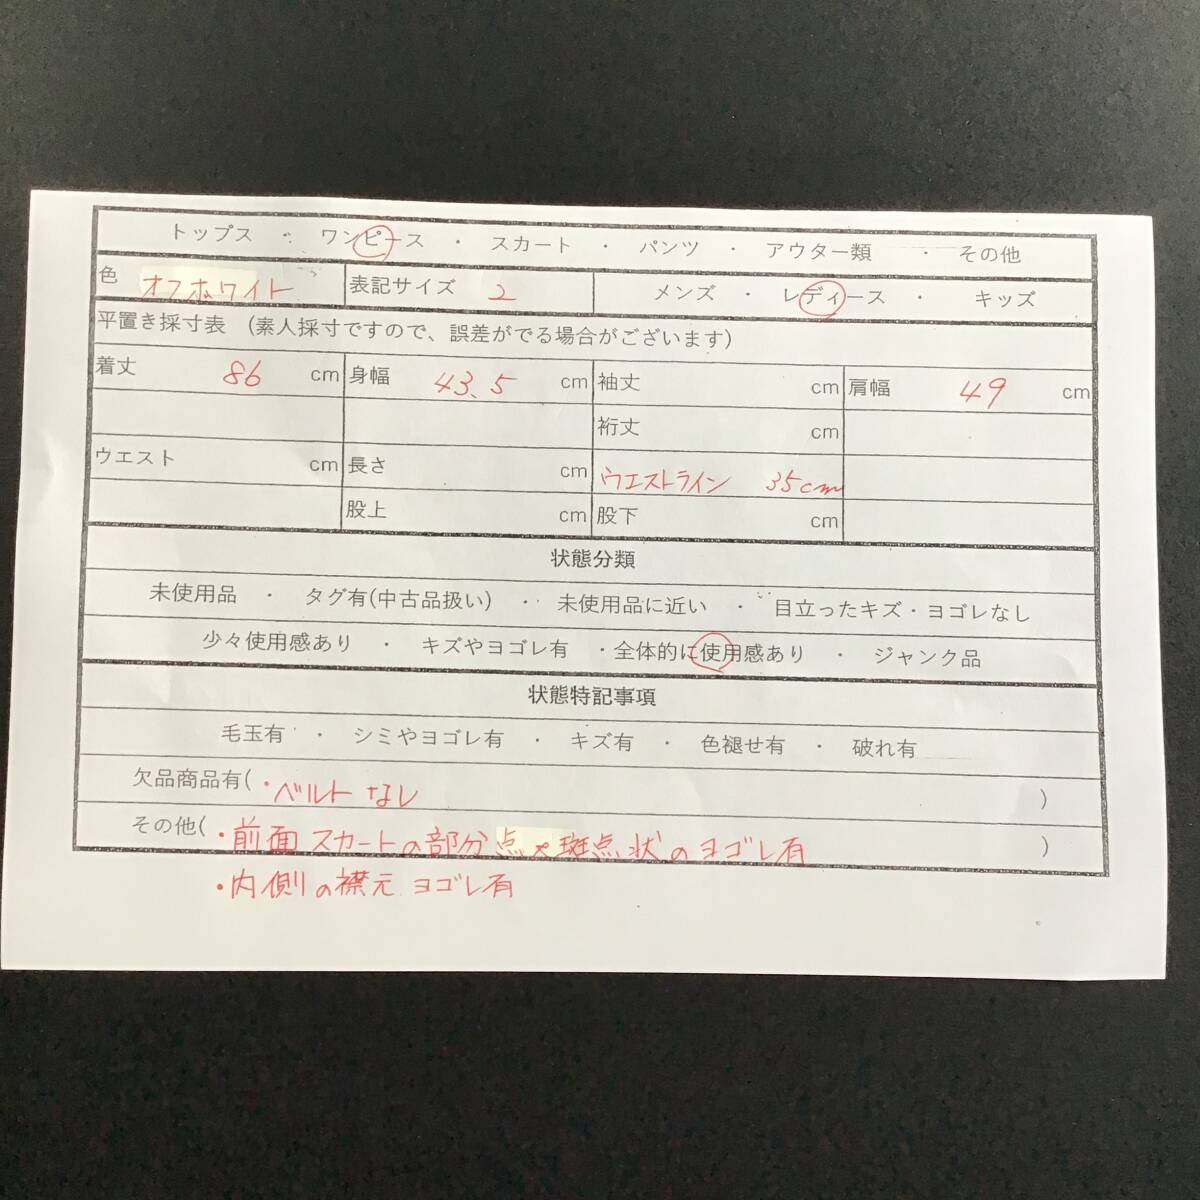 トップス ・ ワンピース ・ スカート ・ パンツ ・ アウター類 ・ その他
色 オフホワイト 表記サイズ 2 メンズ ・ レディース ・ キッズ
平置き採寸表 (素人採寸ですので、誤差がでる場合がございます)
着丈 86 cm 身幅 43.5 cm 袖丈 cm 肩幅 49 cm
裄丈 cm
ウエスト cm 長さ cm ウエストライン 35cm
股上 cm 股下 cm
状態分類
未使用品 ・ タグ有(中古品扱い) ・ 未使用品に近い ・ 目立ったキズ・ヨゴレなし
少々使用感あり ・ キズやヨゴレ有 ・全体的に使用感あり ・ ジャンク品
状態特記事項
毛玉有 ・ シミやヨゴレ有 ・ キズ有 ・ 色褪せ有 ・ 破れ有
欠品商品有( ・ベルトなし )
その他( ・前面スカートの部分点々斑点状のヨゴレ有 )
・内側の襟元ヨゴレ有